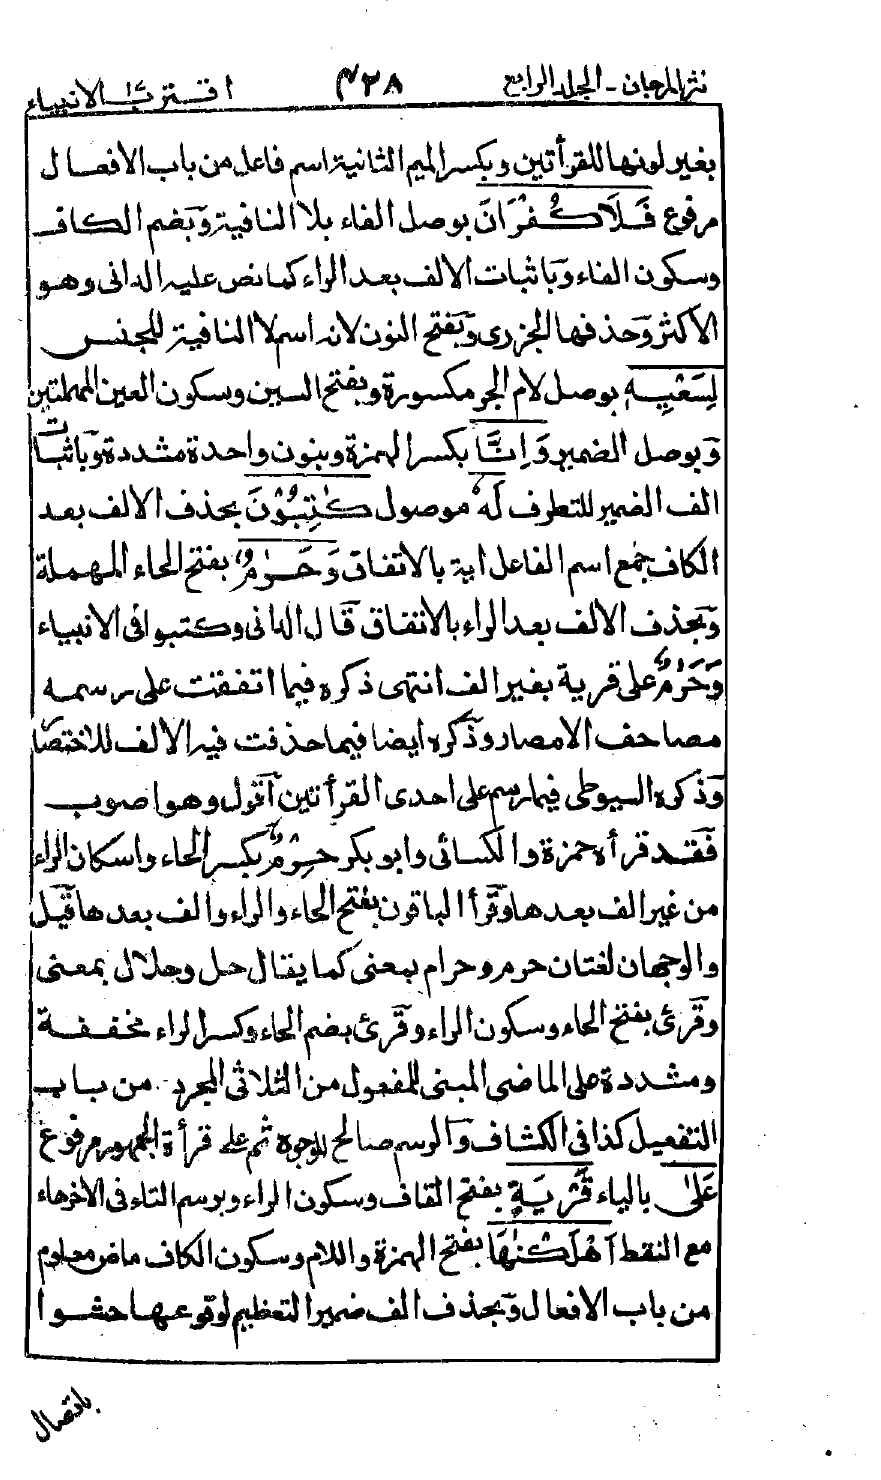 نثر المرجان - الجلد الرابع ٤٢٨ اقترب ١٧ الانبياء
بغير لونها للقرأتين وبكسر الميم الثانية اسم فاعل من باب الافعال
مرفوع فَلَا كُفْرَانَ بوصل الفاء بلا النافية وبضم الكاف
وسكون الفاء وباثبات الالف بعد الراء كما نص عليه الدانى وهو
الاكثر وحذفها الجزرى وبفتح النون لانه اسم لا النافية للجنس
لِسَعْيِهٖ بوصل لام الجر مكسورة وبفتح السين وسكون العين المهملتين
وبوصل الضمير وَاِنَّا بكسر الهمزة وبنون واحدة مشددة وباثبات
الف الضمير للتطرف لَهٗ موصول كٰتِبُوْنَ بحذف الالف بعد
الكاف جمع اسم الفاعل اية بالاتفاق وَحَرٰمٌ بفتح الحاء المهملة
وبحذف الالف بعد الراء بالاتفاق قال الدانى وكتبوا فى الانبياء
وَحَرٰمٌ على قرية بغير الف انتهى ذكره فيما اتفقت على رسمه
مصاحف الامصار وذكره ايضا فيما حذفت فيه الالف للاختصار
وذكره السيوطى فيما رسم على احدى القرأتين آقول وهو اصوب
فقد قرأه حمزة والكسائى وابو بكر حِرْمٌ بكسر الحاء واسكان الراء
من غير الف بعدها وقرأ الباقون بفتح الحاء والراء والف بعدها قيل
والوجهان لغتان حرم وحرام بمعنى كما يقال حل وحلال بمعنى
وقرئ بفتح الحاء وسكون الراء وقرئ بضم الحاء وكسر الراء مخففة
ومشددة على الماضى المبنى للمفعول من الثلاثى المجرد من باب
التفعيل كذا فى الكشاف والرسم صالح للوجوه ثم على قرأة الجمهور مرفوع
عَلٰى بالياء قَرْيَةٍ بفتح القاف وسكون الراء وبرسم التاء فى الاخر هاء
مع النقط اَهْلَكْنٰهَا بفتح الهمزة واللام وسكون الكاف ماض معلوم
من باب الافعال وبحذف الف ضمير التعظيم لوقوعها حشوا
باتصال